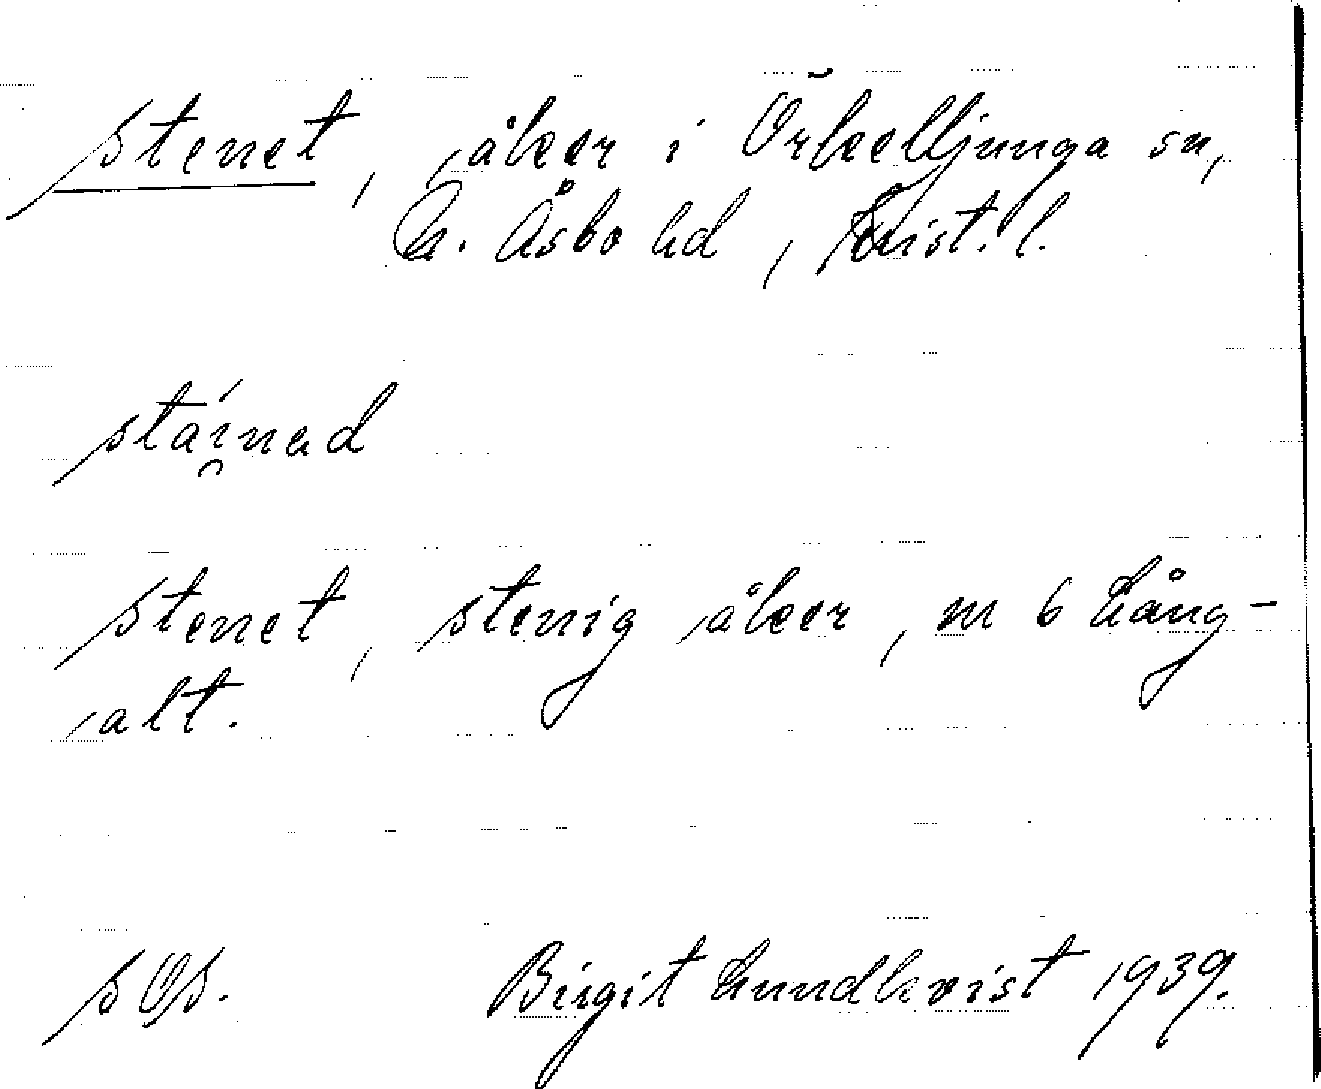 Stenet, åker i Örkelljunga sn,
N. Åsbo hd, Krist. l.
stái̯nad
Stenet, stenig åker, m 6 Lång-
alt.
Birgit Lundkvist 1939.